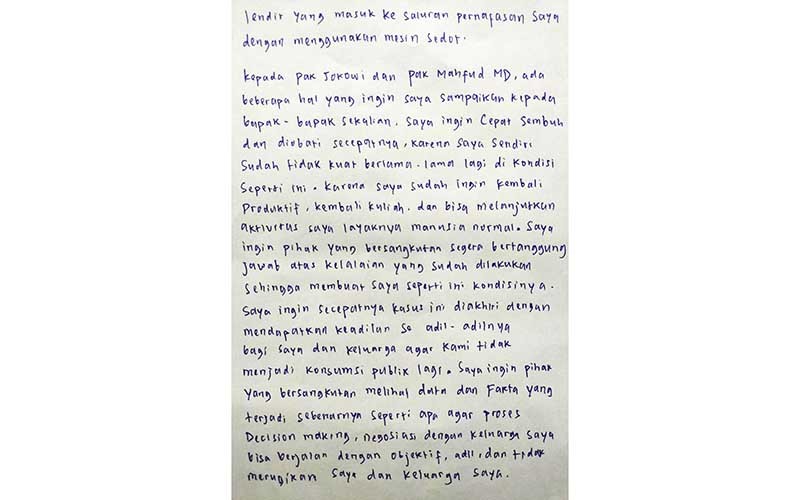 lendir yang masuk ke saluran pernafasan saya
dengan menggunakan mesin sedot.
kepada pak Jokowi dan pak Mahfud MD, ada
beberapa hal yang ingin saya sampaikan kepada
bapak-bapak sekalian. saya ingin Cepat sembuh
dan diobati secepatnya, karena saya sendiri
sudah tidak kuat berlama-lama lagi di kondisi
seperti ini. karena saya sudah ingin kembali
produktif, kembali kuliah, dan bisa melanjutkan
aktivitas saya layaknya manusia normal. Saya
ingin pihak yang bersangkutan segera bertanggung
jawab atas kelalaian yang sudah dilakukan
sehingga membuat saya seperti ini kondisinya.
Saya ingin secepatnya kasus ini diakhiri dengan
mendapatkan keadilan se adil-adilnya
bagi saya dan keluarga agar kami tidak
menjadi konsumsi publik lagi. Saya ingin pihak
yang bersangkutan melihat data dan Fakta yang
terjadi sebenarnya seperti apa agar proses
Decision making, negosiasi dengan keluarga saya
bisa berjalan dengan objektif, adil, dan tidak
merugikan saya dan keluarga saya.